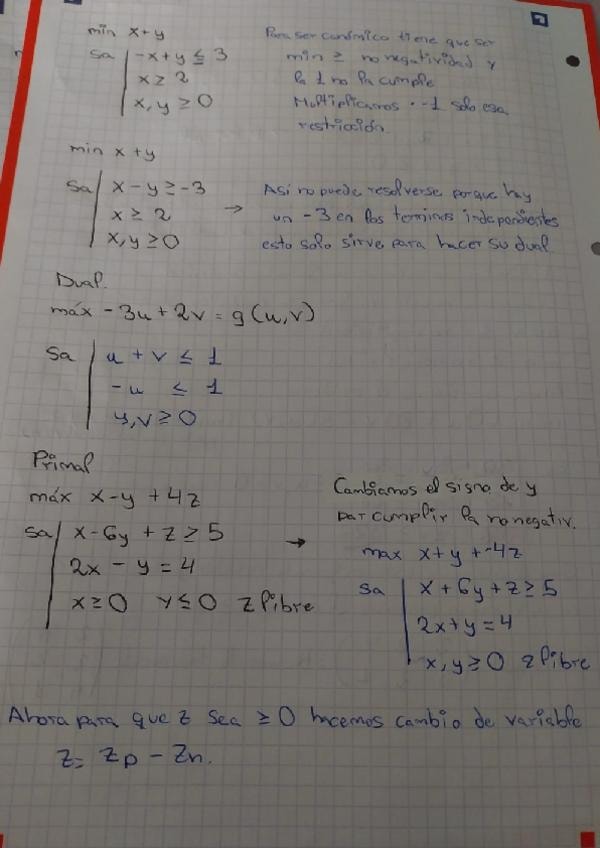 min x+y
sa -x+y ≤ 3
x ≥ 2
x, y ≥ 0
Para ser canónico tiene que ser
min ≥ no negatividad y
la 1 no la cumple
Multiplicamos · -1 solo esa
restricción.
min x+y
sa x - y ≥ -3
x ≥ 2
x, y ≥ 0
→ Así no puede resolverse porque hay
un -3 en los terminos independientes
esto solo sirve para hacer su dual
Dual.
máx -3u + 2v = g(u,v)
sa u + v ≤ 1
-u ≤ 1
u, v ≥ 0
Primal
máx x-y + 4z
sa x - 6y + z ≥ 5
2x - y = 4
x ≥ 0 y ≤ 0 z libre
→
Cambiamos el signo de y
par cumplir la no negativ.
max x+y +-4z
sa x + 6y + z ≥ 5
2x + y = 4
x, y ≥ 0 z libre
Ahora para que z sea ≥ 0 hacemos cambio de variable
z = zp - zn.